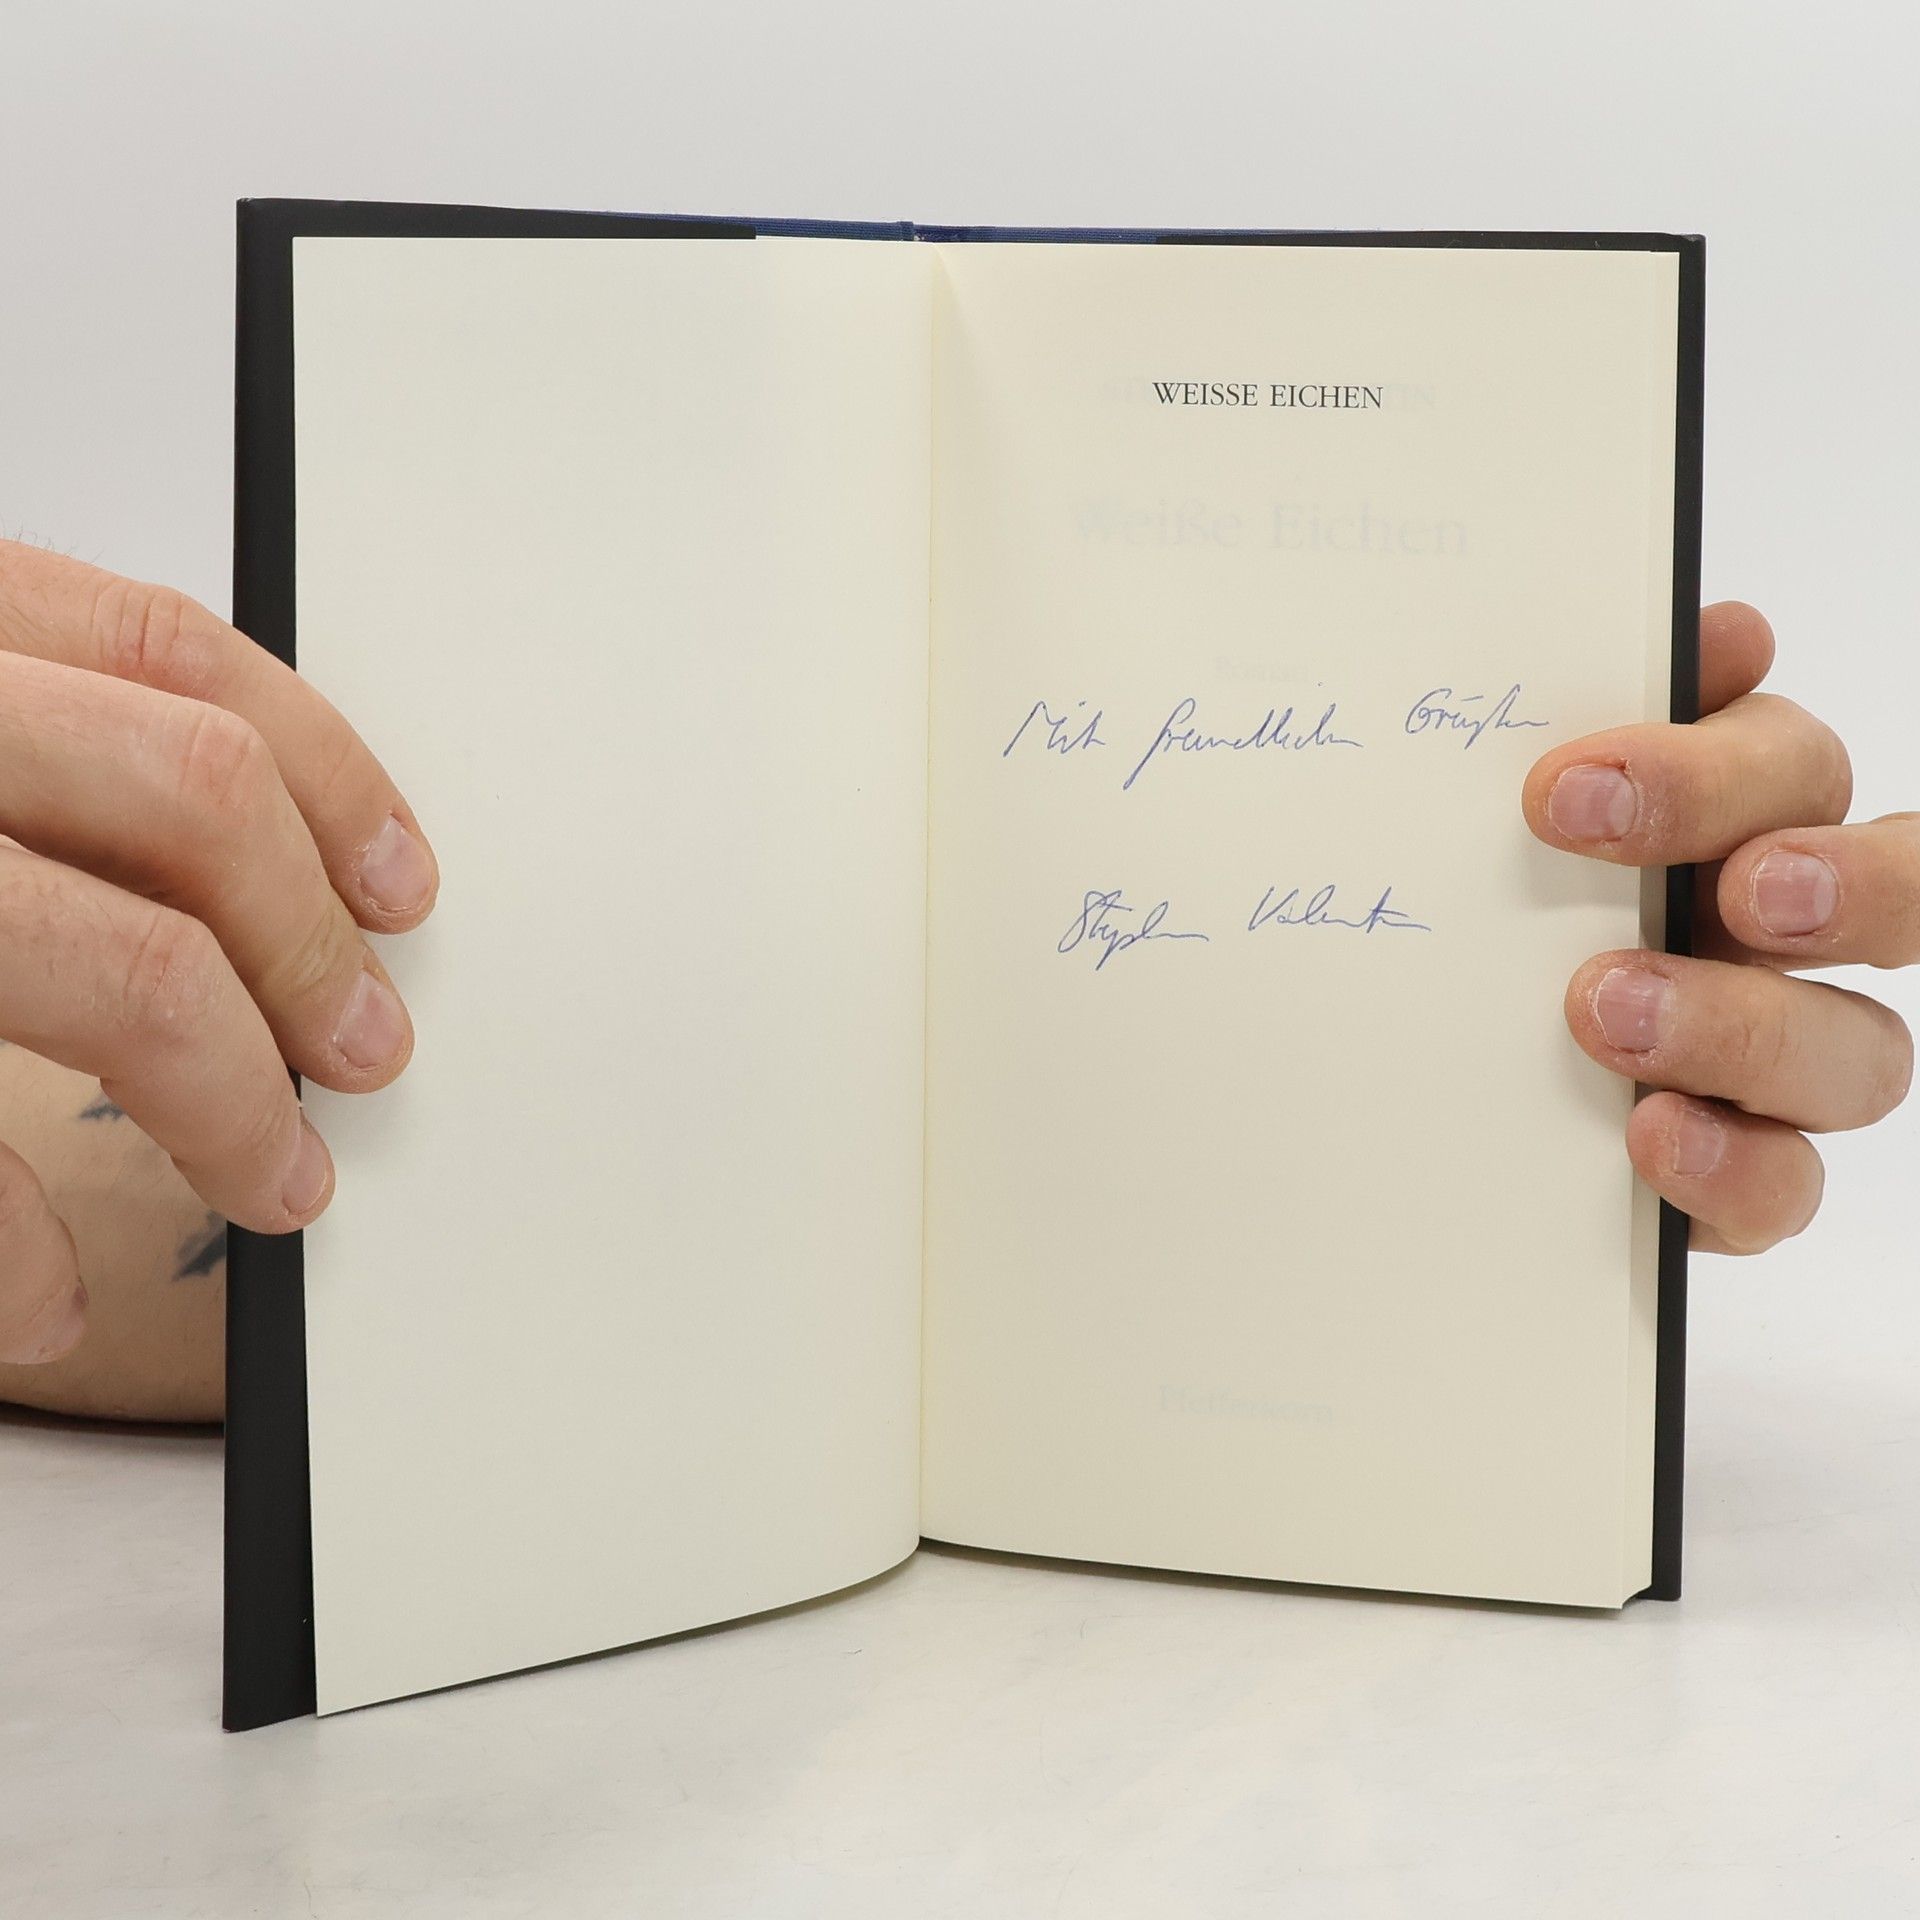 WEISSE EICHEN
Weiße Eichen
Roman
Mit freundlichen Grüßen
Stephan Valentin
Pfefferkorn